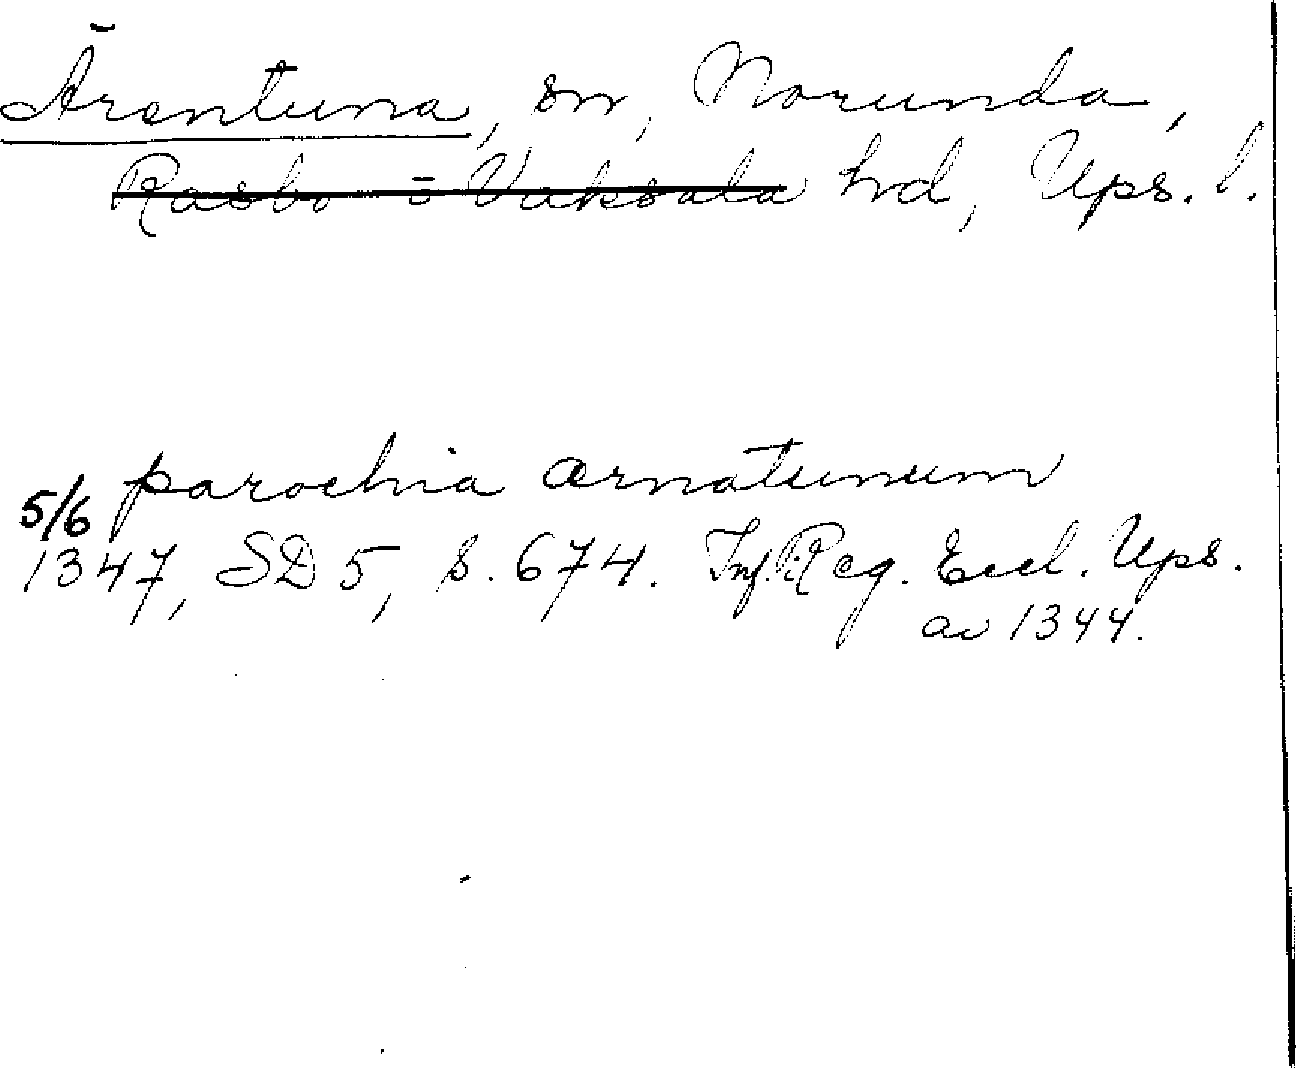 Ärentuna, sn, Norunda,
Rasbo o Vaksala hd, Ups. l.
parochia ærnatunum
5/6
1347, SD 5, s. 674. Inf. i Reg. Eccl. Ups.
av 1344.